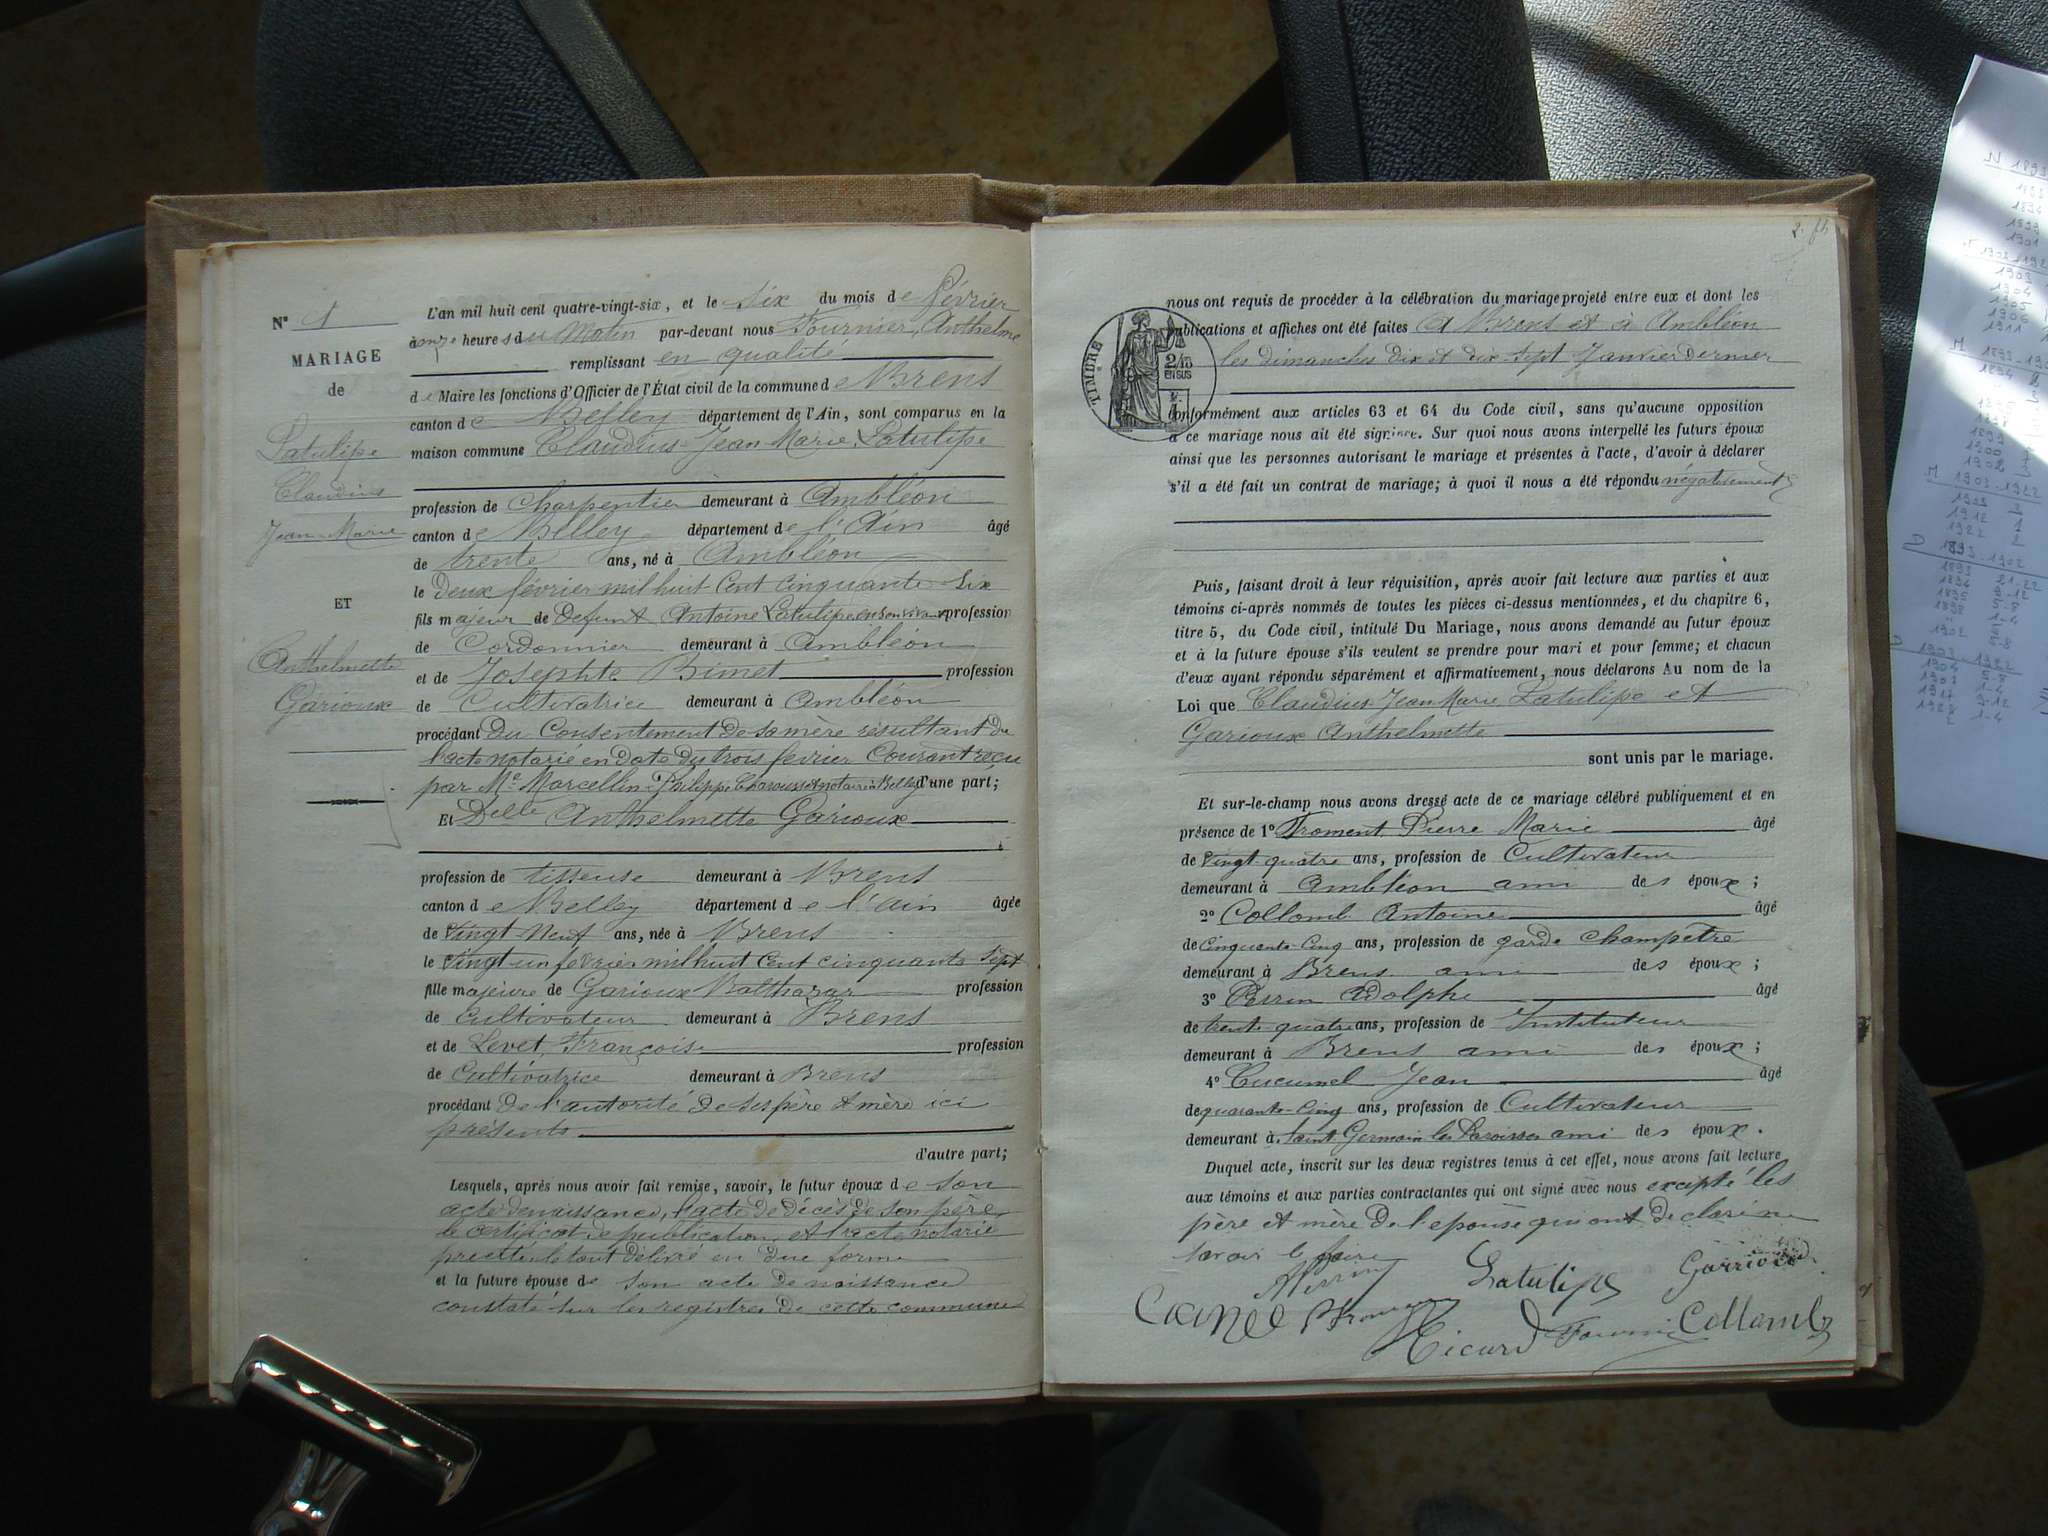 N° 1
MARIAGE
de
Latulipe
Claudius
Jean-Marie
ET
Anthelmette
Garioux
L'an mil huit cent quatre-vingt-six, et le Six du mois de février
à onze heures du Matin par-devant nous Fournier, Anthelme
remplissant en qualité
de Maire les fonctions d'Officier de l'État civil de la commune de Brens
canton de Belley département de l'Ain, sont comparus en la
maison commune Claudius-Jean Marie Latulipe
profession de Charpentier demeurant à Ambléon
canton de Belley département de l'Ain âgé
de trente ans, né à Ambléon
le Deux février mil huit Cent cinquante Six
fils majeur de Défunt Antoine Latulipe en son vivant profession
de Cordonnier demeurant à Ambléon
et de Josephte Bimet profession
de Cultivatrice demeurant à Ambléon
procédant du Consentement de sa mère résultant de
l'acte notarié en date du trois février Courant reçu
par Me Marcellin-Philippe notaire à Belley d'une part;
Et Delle Anthelmette Garioux
profession de tisseuse demeurant à Brens
canton de Belley département de l'ain âgée
de Vingt Neuf ans, née à Brens
le Vingt un fevrier mil huit Cent cinquante Sept
fille majeure de Garioux Balthazar profession
de Cultivateur demeurant à Brens
et de Levet, Françoise profession
de Cultivatrice demeurant à Brens
procédant de l'autorité de ses père et mère ici
présents
d'autre part;
Lesquels, après nous avoir fait remise, savoir, le futur époux de son
acte de naissance, l'acte de décès de son père
le certificat de publication et l'acte notarié
precité le tout délivré en due forme
et la future épouse de son acte de naissance
constaté sur les registres de cette commune
2.
TIMBRE
2/10
EN SUS
nous ont requis de procéder à la célébration du mariage projeté entre eux et dont les
publications et affiches ont été faites à Brens et à Ambléon
les dimanches dix et dix-sept Janvier dernier
conformément aux articles 63 et 64 du Code civil, sans qu'aucune opposition
à ce mariage nous ait été signifiée. Sur quoi nous avons interpellé les futurs époux
ainsi que les personnes autorisant le mariage et présentes à l'acte, d'avoir à déclarer
s'il a été fait un contrat de mariage; à quoi il nous a été répondu négativement
Puis, faisant droit à leur réquisition, après avoir fait lecture aux parties et aux
témoins ci-après nommés de toutes les pièces ci-dessus mentionnées, et du chapitre 6,
titre 5, du Code civil, intitulé Du Mariage, nous avons demandé au futur époux
et à la future épouse s'ils veulent se prendre pour mari et pour femme; et chacun
d'eux ayant répondu séparément et affirmativement, nous déclarons Au nom de la
Loi que Claudius Jean Marie Latulipe et
Garioux Anthelmette
sont unis par le mariage.
Et sur-le-champ nous avons dressé acte de ce mariage célébré publiquement et en
présence de 1° Froment Pierre Marie âgé
de Vingt quatre ans, profession de Cultivateur
demeurant à Ambléon ami des époux;
2° Collomb Antoine âgé
de Cinquante-Cinq ans, profession de garde champêtre
demeurant à Brens ami des époux;
3° Perrin Adolphe âgé
de trente quatre ans, profession de Instituteur
demeurant à Brens ami des époux;
4° Cucumel Jean âgé
de quarante-Cinq ans, profession de Cultivateur
demeurant à Saint Germain les Paroisses ami des époux.
Duquel acte, inscrit sur les deux registres tenus à cet effet, nous avons fait lecture
aux témoins et aux parties contractantes qui ont signé avec nous excepté les
père et mère de l'épouse qui ont déclaré ne
savoir le faire
APerrin Latulipe
Ricard Fournier Collomb